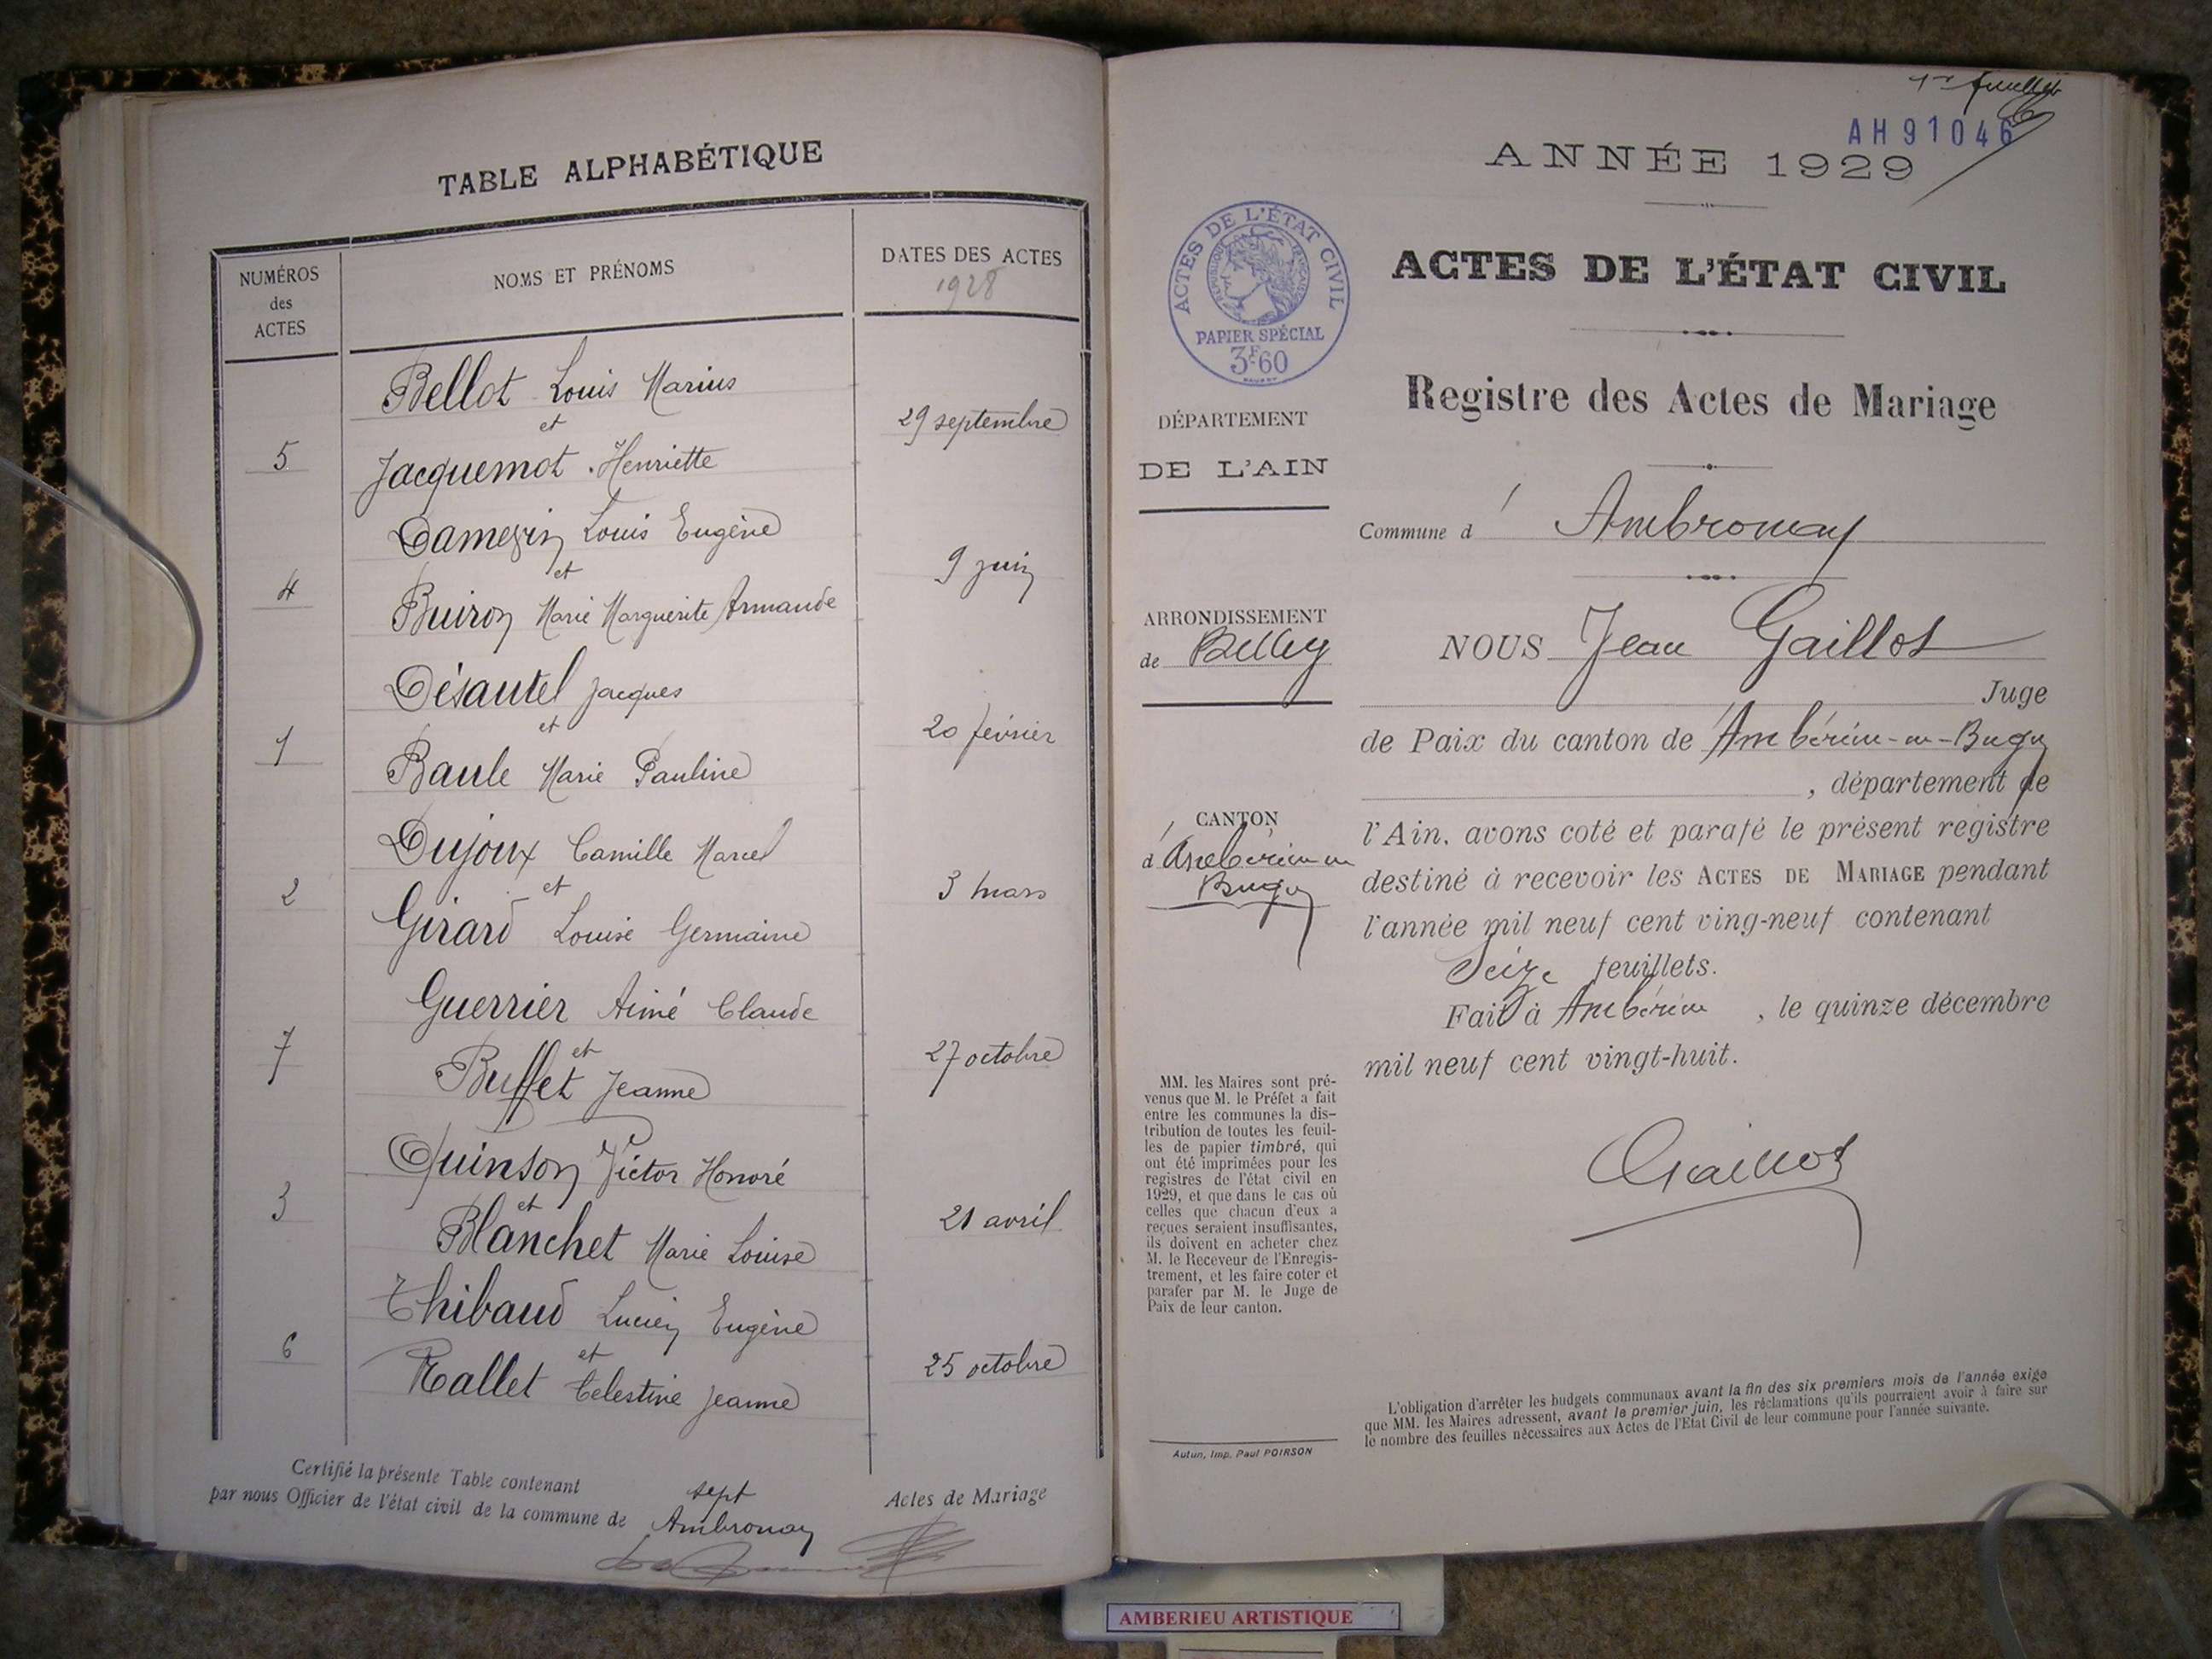 TABLE ALPHABÉTIQUE
NUMÉROS
des
ACTES
NOMS ET PRÉNOMS
DATES DES ACTES
1928
Bellot Louis Marius
et
29 septembre
5
Jacquemot Henriette
Damezin Louis Eugène
et
9 juin
4
Buiron Marie Marguerite Armande
Désautel Jacques
et
20 février
1
Baule Marie Pauline
Dujoux Camille Marcel
et
3 mars
2
Girard Louise Germaine
Guerrier Aimé Claude
et
27 octobre
7
Buffet Jeanne
Quinson Victor Honoré
et
21 avril
3
Blanchet Marie Louise
Thibaud Lucien Eugène
et
25 octobre
6
Rallet Celestine Jeanne
Certifié la présente Table contenant sept Actes de Mariage
par nous Officier de l'état civil de la commune de Ambronay
1er feuillet
AH 91046
ANNÉE 1929
ACTES DE L'ÉTAT CIVIL
RÉPUBLIQUE FRANÇAISE
PAPIER SPÉCIAL
3F60
ACTES DE L'ÉTAT CIVIL
Registre des Actes de Mariage
DÉPARTEMENT
DE L'AIN
Commune d' Ambronay
ARRONDISSEMENT
de Belley
NOUS Jean Gaillot
Juge
de Paix du canton de Ambérieu-en-Bugey
, département de
CANTON
d'Ambérieu en
Bugey
l'Ain, avons coté et parafé le présent registre
destiné à recevoir les ACTES DE MARIAGE pendant
l'année mil neuf cent ving-neuf contenant
Seize feuillets.
Fait à Ambérieu, le quinze décembre
mil neuf cent vingt-huit.
Gaillot
MM. les Maires sont pré-
venus que M. le Préfet a fait
entre les communes la dis-
tribution de toutes les feuil-
les de papier timbré, qui
ont été imprimées pour les
registres de l'état civil en
1929, et que dans le cas où
celles que chacun d'eux a
reçues seraient insuffisantes,
ils doivent en acheter chez
M. le Receveur de l'Enregis-
trement, et les faire coter et
parafer par M. le Juge de
Paix de leur canton.
Autun, Imp. Paul POIRSON
L'obligation d'arrêter les budgets communaux avant la fin des six premiers mois de l'année exige
que MM. les Maires adressent, avant le premier juin, les réclamations qu'ils pourraient avoir à faire sur
le nombre des feuilles nécessaires aux Actes de l'Etat Civil de leur commune pour l'année suivante.
AMBERIEU ARTISTIQUE